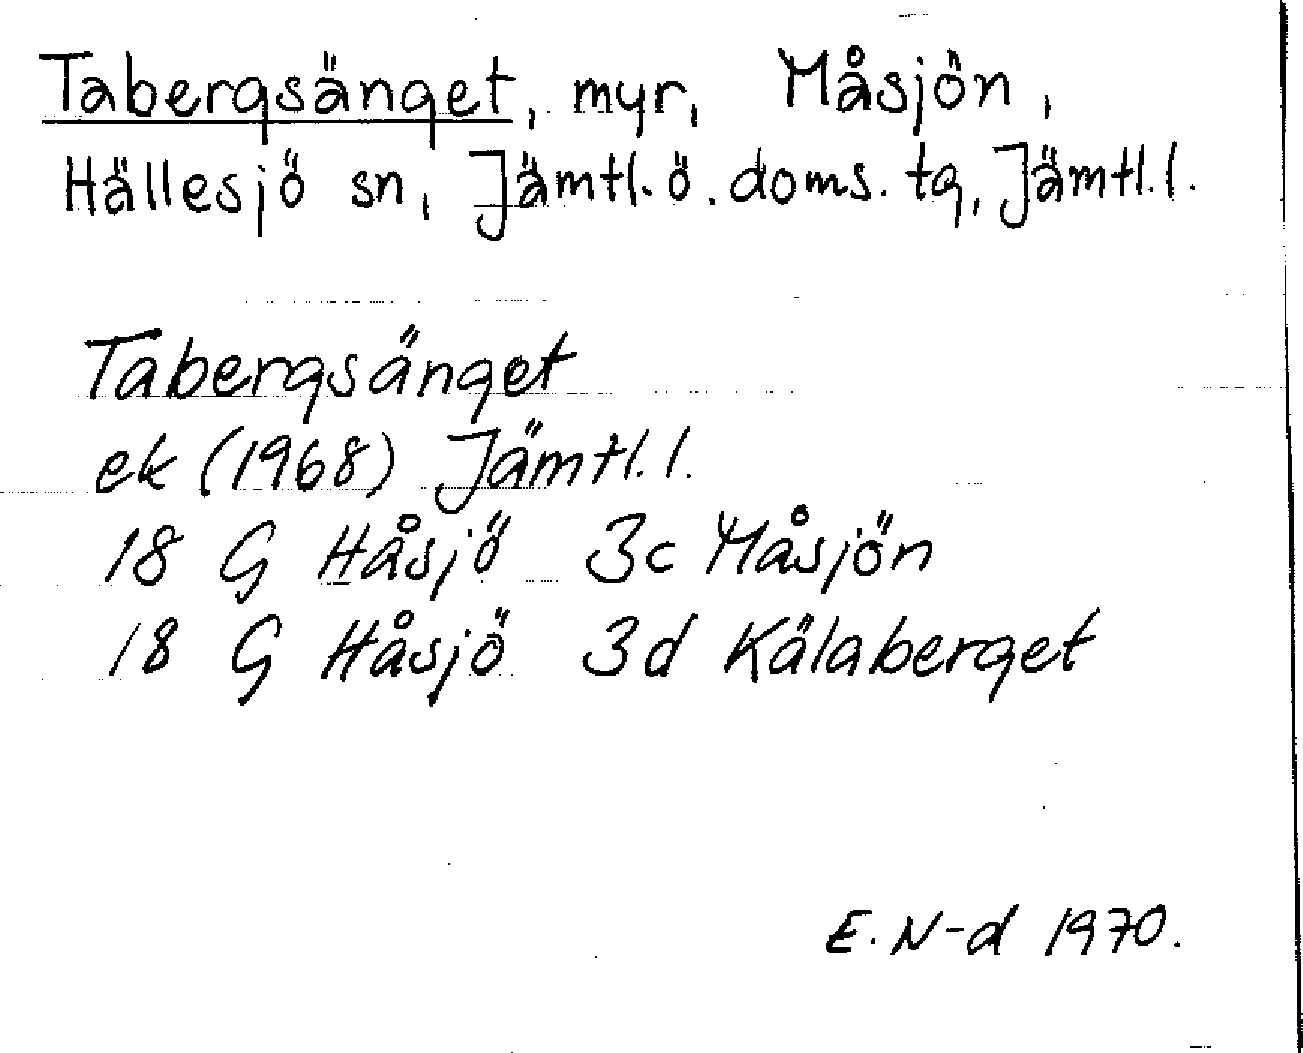 Tabergsänget, myr, Måsjön,
Hällesjö sn, Jämtl. ö. doms. tg, Jämtl. l.
Tabergsänget
ek (1968) Jämtl. l.
18 G Håsjö 3c Måsjön
18 G Håsjö 3d Kälaberget
E. N-d 1970.